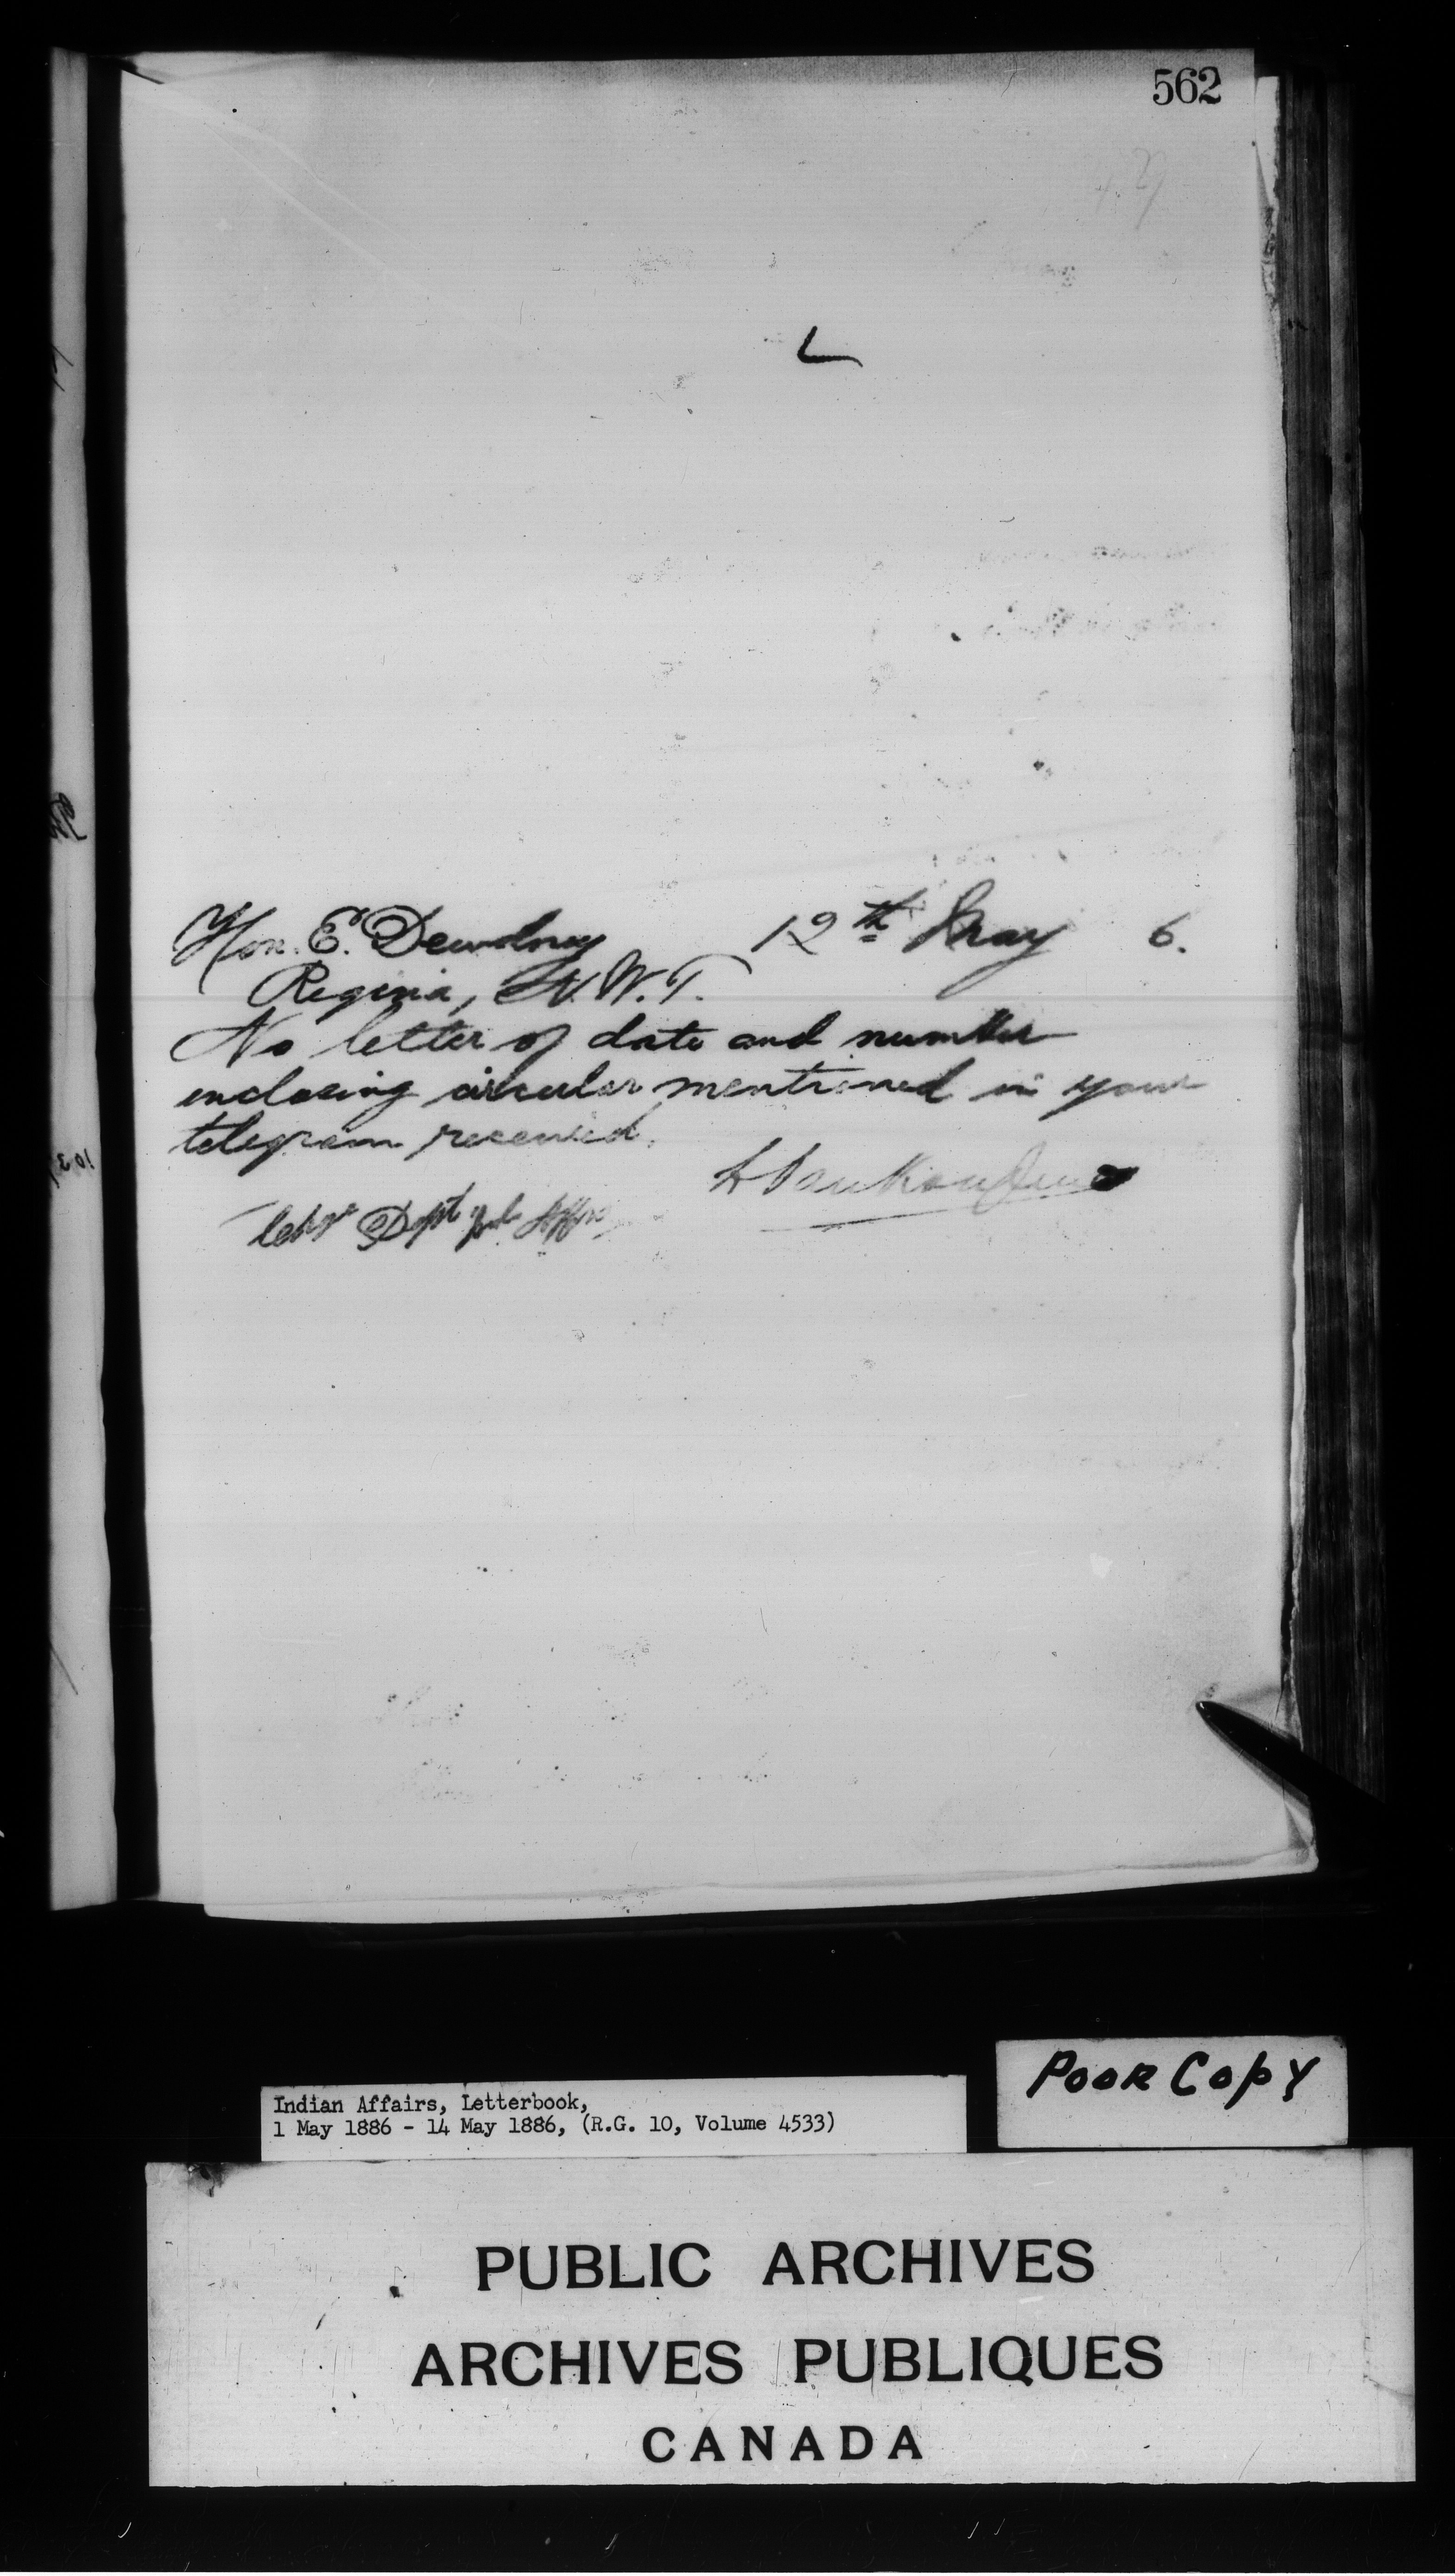 562
L
Hon. E. Dewdney 12th May 6.
Regina, N.W.T.
No letter of date and number
enclosing circular mentioned in your
telegram received.
L VanKoughnet
Chge Dept Ind Affrs
Poor Copy
Indian Affairs, Letterbook,
1 May 1886 - 14 May 1886, (R.G. 10, Volume 4533)
PUBLIC ARCHIVES
ARCHIVES PUBLIQUES
CANADA